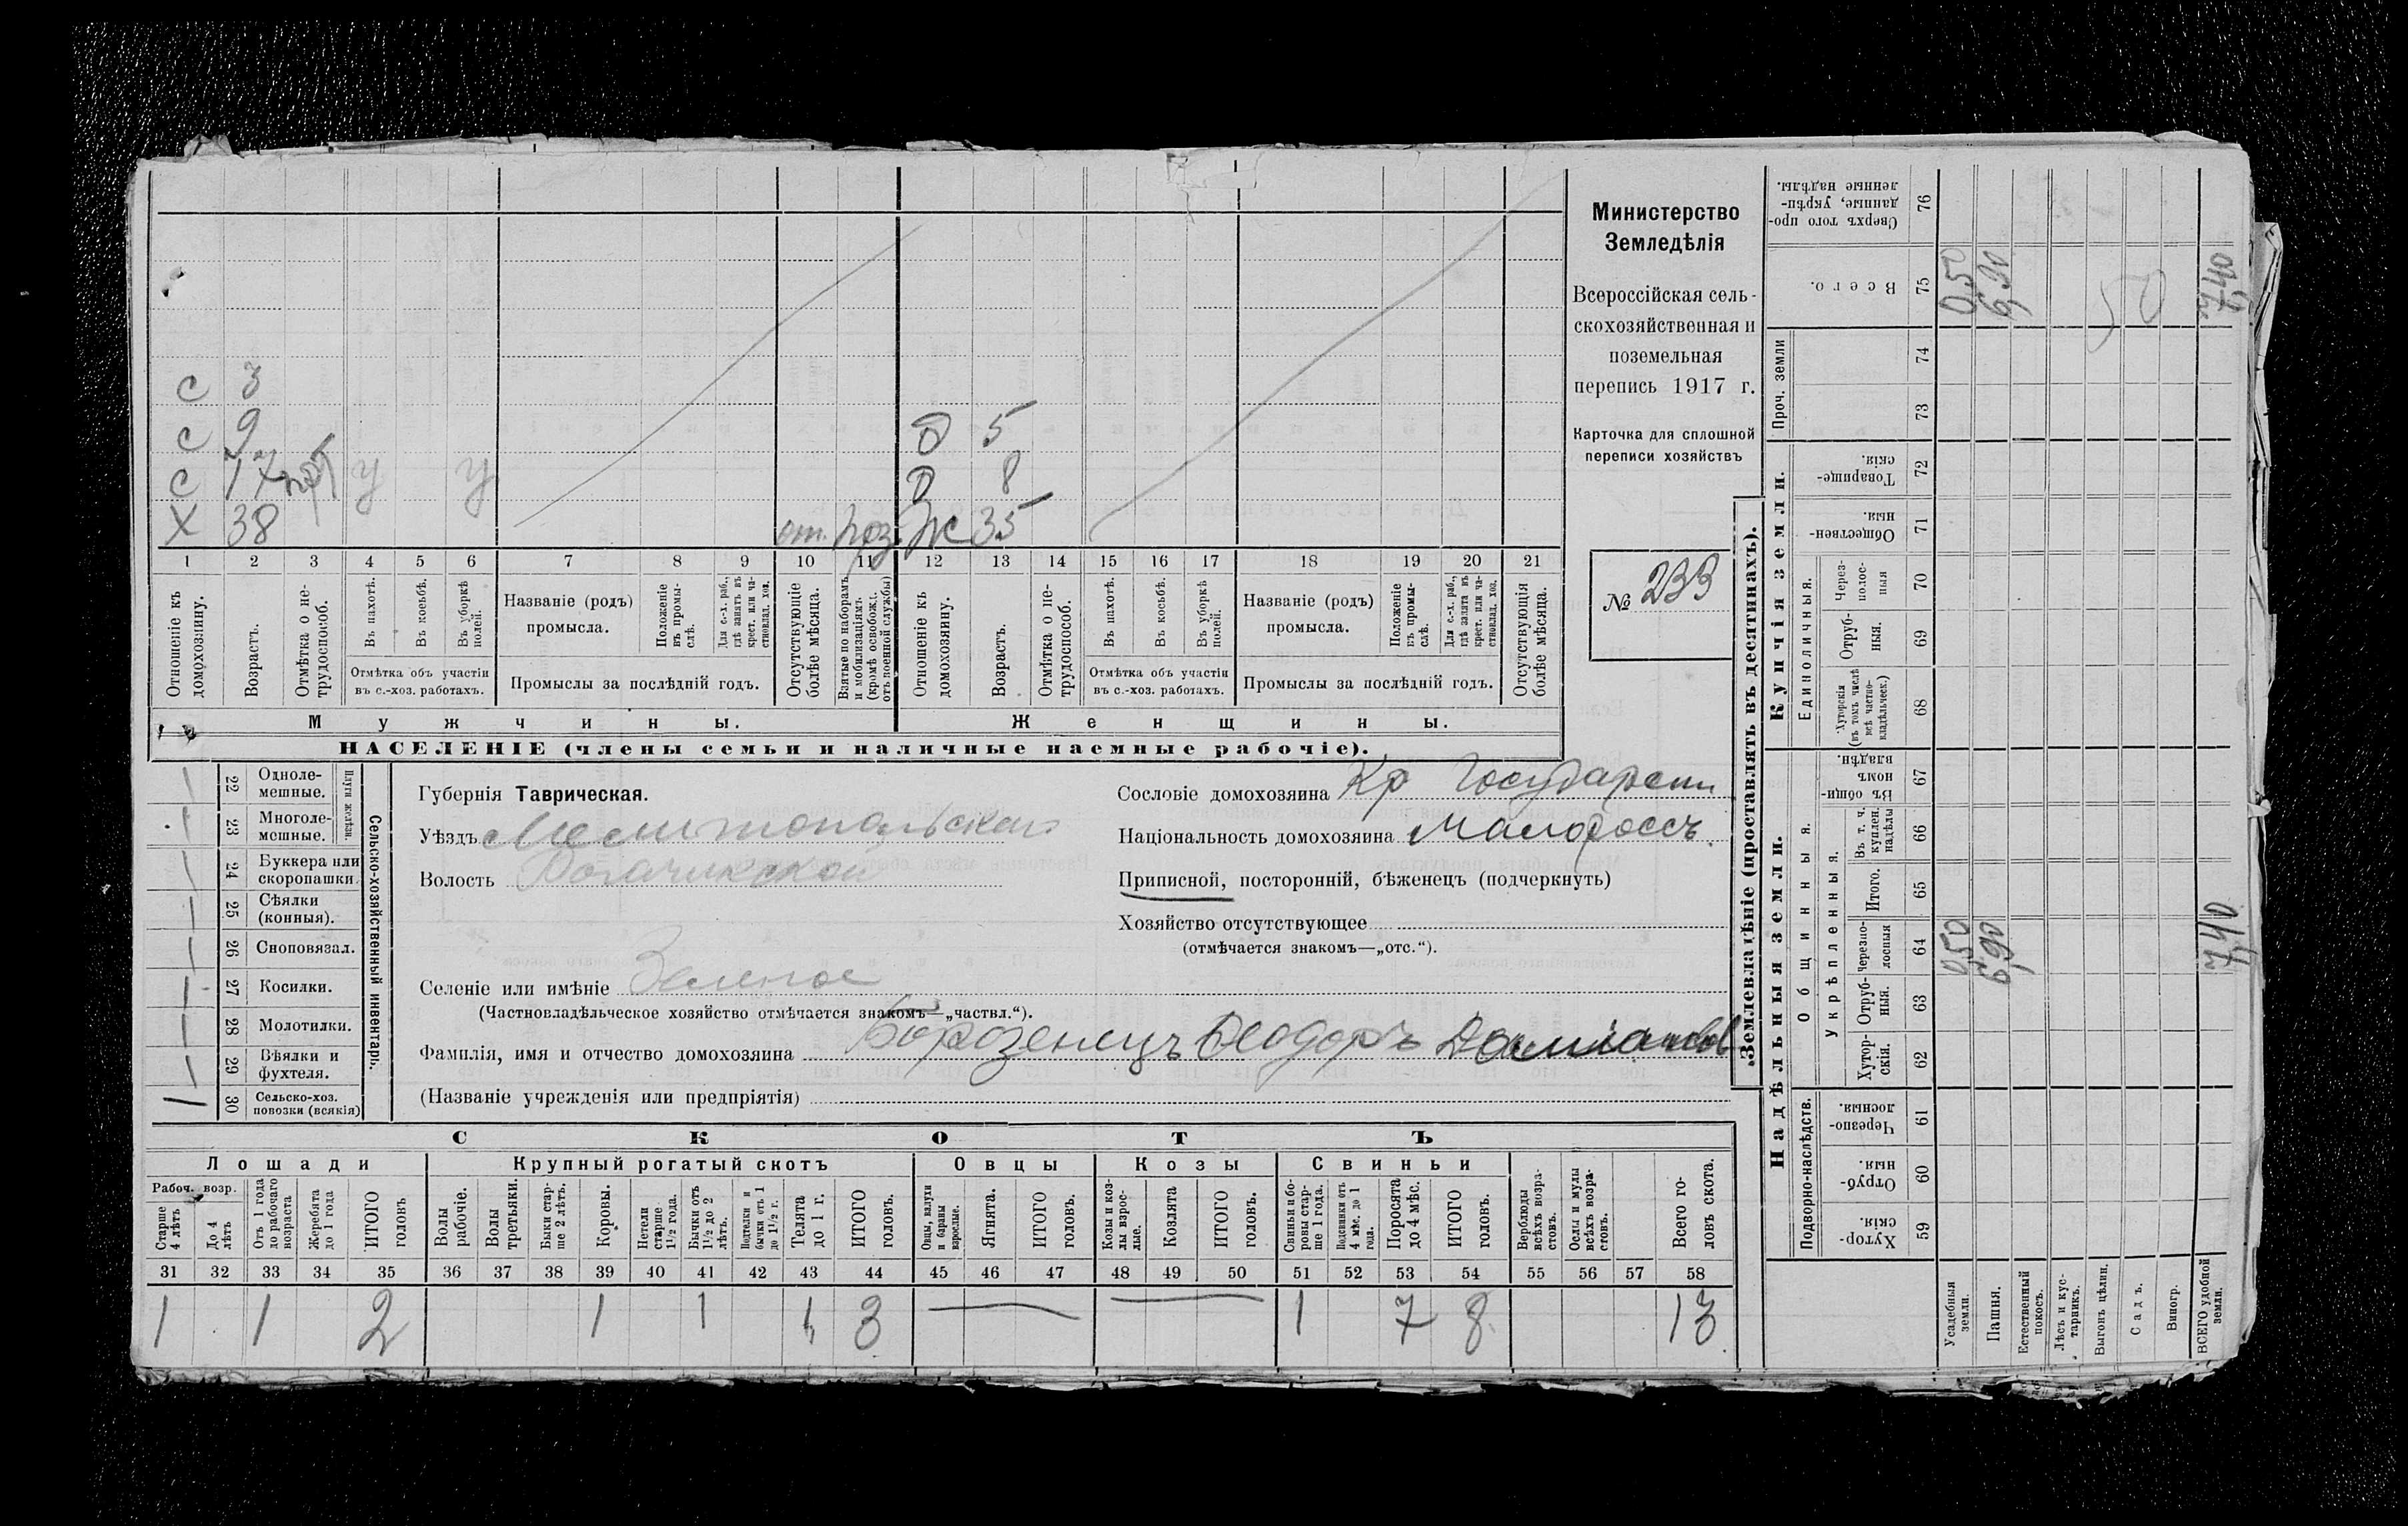 Министерство
Земледѣлія
Всероссійская сель-
скохозяйственная и
поземельная
перепись 1917 г.
Карточка для сплошной
переписи хозяйствъ
№ 233
С 3
С 9
Д 5
С 17 У У
Д 8
Х 38 от. Ж 35
1 2 3 4 5 6 7 8 9 10 11 12 13 14 15 16 17 18 19 20 21
Отношеніе къ домохозяину.
Возрастъ.
Отмѣтка о не-трудоспособ.
Въ пахотѣ.
Въ косьбѣ.
Въ уборкѣ полей.
Отмѣтка объ участіи
въ с.-хоз. работахъ.
Названіе (родъ)
промысла.
Положеніе въ промы-слѣ.
Для с.-х. раб., гдѣ занятъ въ крест. или ча-стновлад. хоз.
Промыслы за послѣдній годъ.
Отсутствующіе болѣе мѣсяца.
Взятые по наборамъ и мобилизаціямъ (кромѣ освобожд. отъ военной службы)
Отношеніе къ домохозяину.
Возрастъ.
Отмѣтка о не-трудоспособ.
Въ пахотѣ.
Въ косьбѣ.
Въ уборкѣ полей.
Отмѣтка объ участіи
въ с.-хоз. работахъ.
Названіе (родъ)
промысла.
Положеніе въ промы-слѣ.
Для с.-х. раб., гдѣ занята въ крест. или ча-стновлад. хоз.
Промыслы за послѣдній годъ.
Отсутствующія болѣе мѣсяца.
Мужчины.
Женщины.
НАСЕЛЕНІЕ (члены семьи и наличные наемные рабочіе).
Сельско-хозяйственный инвентарь.
Плуги желѣзн.
22 Одноле-мешные.
23 Многоле-мешные.
24 Буккера или скоропашки.
25 Сѣялки (конныя).
26 Сноповязал.
27 Косилки.
28 Молотилки.
29 Вѣялки и фухтеля.
30 Сельско-хоз. повозки (всякія) 1
Губернія Таврическая.
Уѣздъ Мелитопольскаго
Волость Рогачикской
Селеніе или имѣніе Зеленое
(Частновладѣльческое хозяйство отмѣчается знакомъ—„частвл.“).
Фамилія, имя и отчество домохозяина Борозенецъ Ѳеодоръ Даміановъ
(Названіе учрежденія или предпріятія)
Сословіе домохозяина Кр Государствен
Національность домохозяина Малороссъ.
Приписной, посторонній, бѣженецъ (подчеркнуть)
Хозяйство отсутствующее
(отмѣчается знакомъ—„отс.“).
СКОТЪ
Лошади
Крупный рогатый скотъ
Овцы
Козы
Свиньи
Рабоч. возр.
Старше 4 лѣтъ
До 4 лѣтъ
Отъ 1 года до рабочаго возраста
Жеребята до 1 года
ИТОГО головъ
Волы рабочіе.
Волы третьяки.
Быки стар-ше 2 лѣтъ.
Коровы.
Нетели старше 1½ года.
Бычки отъ 1½ до 2 лѣтъ.
Подтелки и бычки отъ 1 до 1½ г.
Телята до 1 г.
ИТОГО головъ.
Овцы, валухи и бараны взрослые.
Ягнята.
ИТОГО головъ.
Козы и коз-лы взрос-лые.
Козлята
ИТОГО головъ.
Свиньи и бо-ровы стар-ше 1 года.
Подсвинки отъ 4 мѣс. до 1 года.
Поросята до 4 мѣс.
ИТОГО головъ.
Верблюды всѣхъ возра-стовъ.
Ослы и мулы всѣхъ возра-стовъ.
Всего го-ловъ скота.
31 32 33 34 35 36 37 38 39 40 41 42 43 44 45 46 47 48 49 50 51 52 53 54 55 56 57 58
1 1 2 1 1 1 3 1 7 8 13
Землевладѣніе (проставлять въ десятинахъ).
Надѣльныя земли.
Купчія земли.
Проч. земли
Подворно-наслѣдств.
Общинныя.
Укрѣпленныя.
Единоличныя.
Хутор-скія. 59
Отруб-ныя. 60
Черезпо-лосныя. 61
Хутор-скія. 62
Отруб-ныя. 63
Черезпо-лосныя 64
Итого. 65
Въ т. ч. куплен. надѣлы 66
Въ общи-номъ владѣн. 67
Хуторскія (въ томъ числѣ всѣ частно-владѣльческ.) 68
Отруб-ныя. 69
Через-полос-ныя 70
Обществен-ныя. 71
Товарище-скія. 72
73
74
Всего. 75
Сверхъ того про-данные, укрѣп-ленные надѣлы. 76
Усадебныя земли. 0,50 0,50
Пашня. 6,90 6,90
Естественный покосъ.
Лѣсъ и кус-тарникъ.
Выгонъ цѣлин.
Садъ.
Виногр.
ВСЕГО удобной земли. 7,40 7,40
50